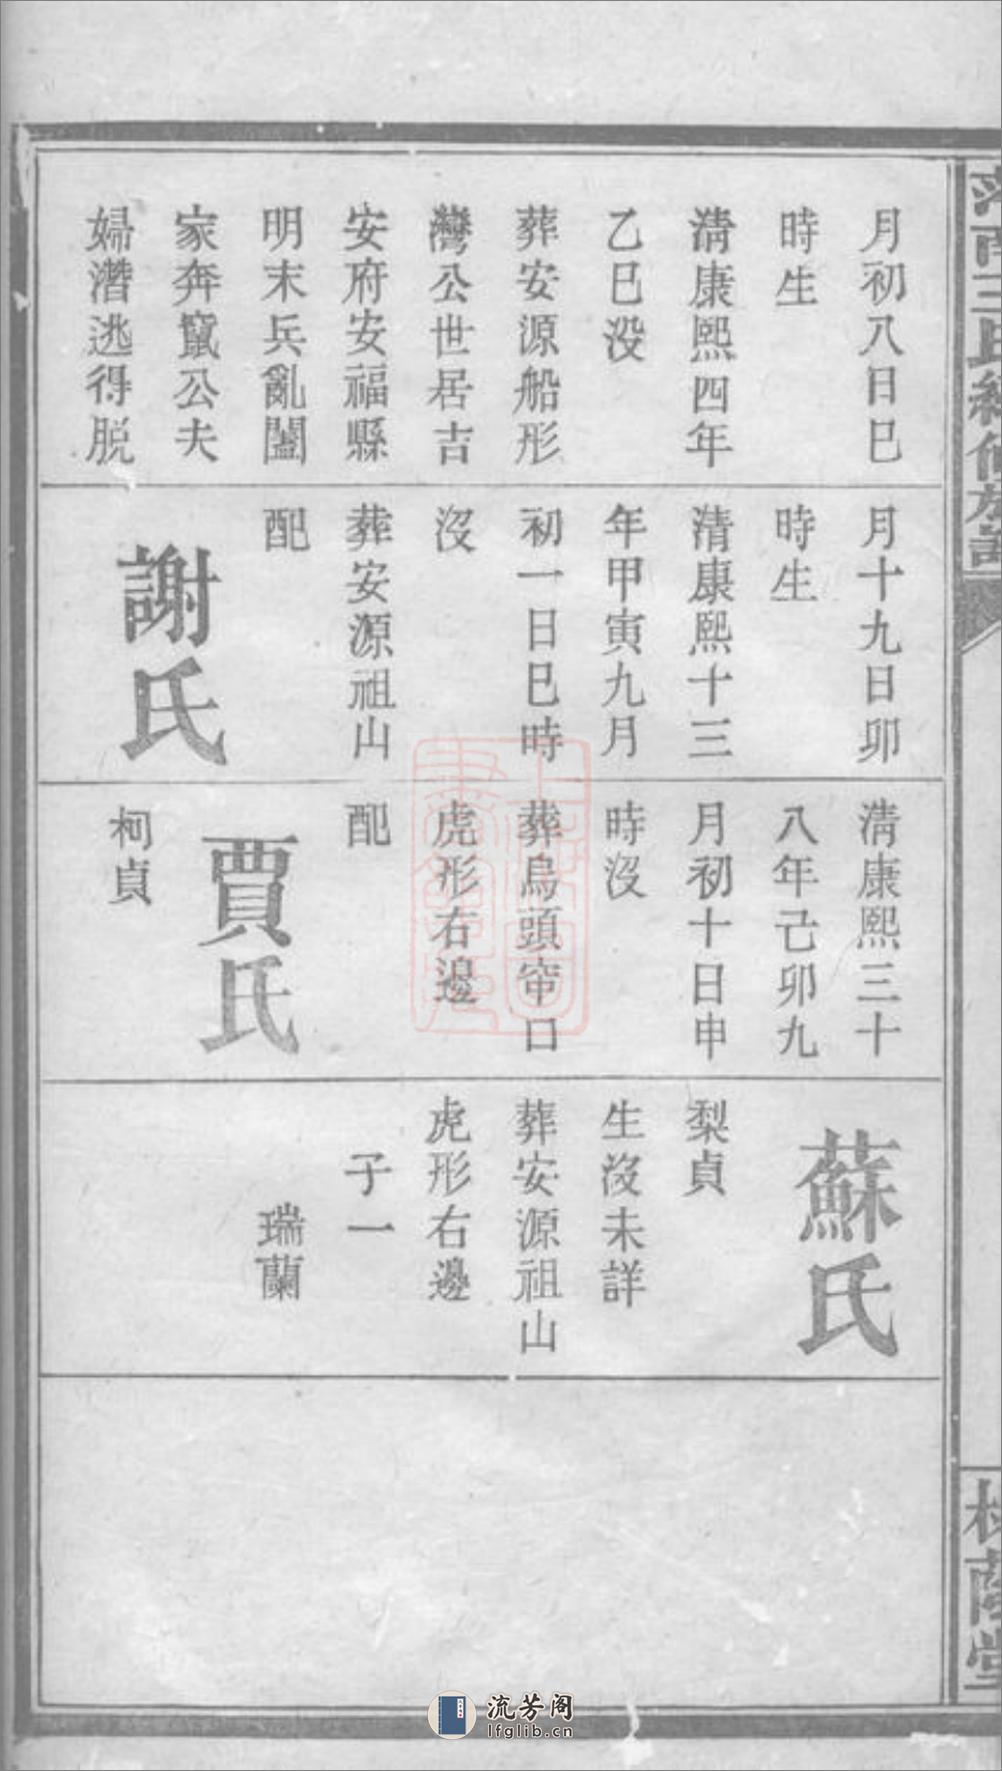 月初八日巳
時生
清康熙四年
乙巳没
葬安源船形
灣公世居吉
安府安福縣
明末兵亂闔
家奔竄公夫
婦潛逃得脱
月十九日卯
時生
清康熙十三
年甲寅九月
初一日巳時
沒
葬安源祖山
配
謝氏
清康熙三十
八年己卯九
月初十日申
時沒
葬烏頭窂口
虎形右邊
配
賈氏
柯貞
蘇氏
梨貞
生沒未詳
葬安源祖山
虎形右邊
子一
瑞蘭
流芳阁
lfglib.cn